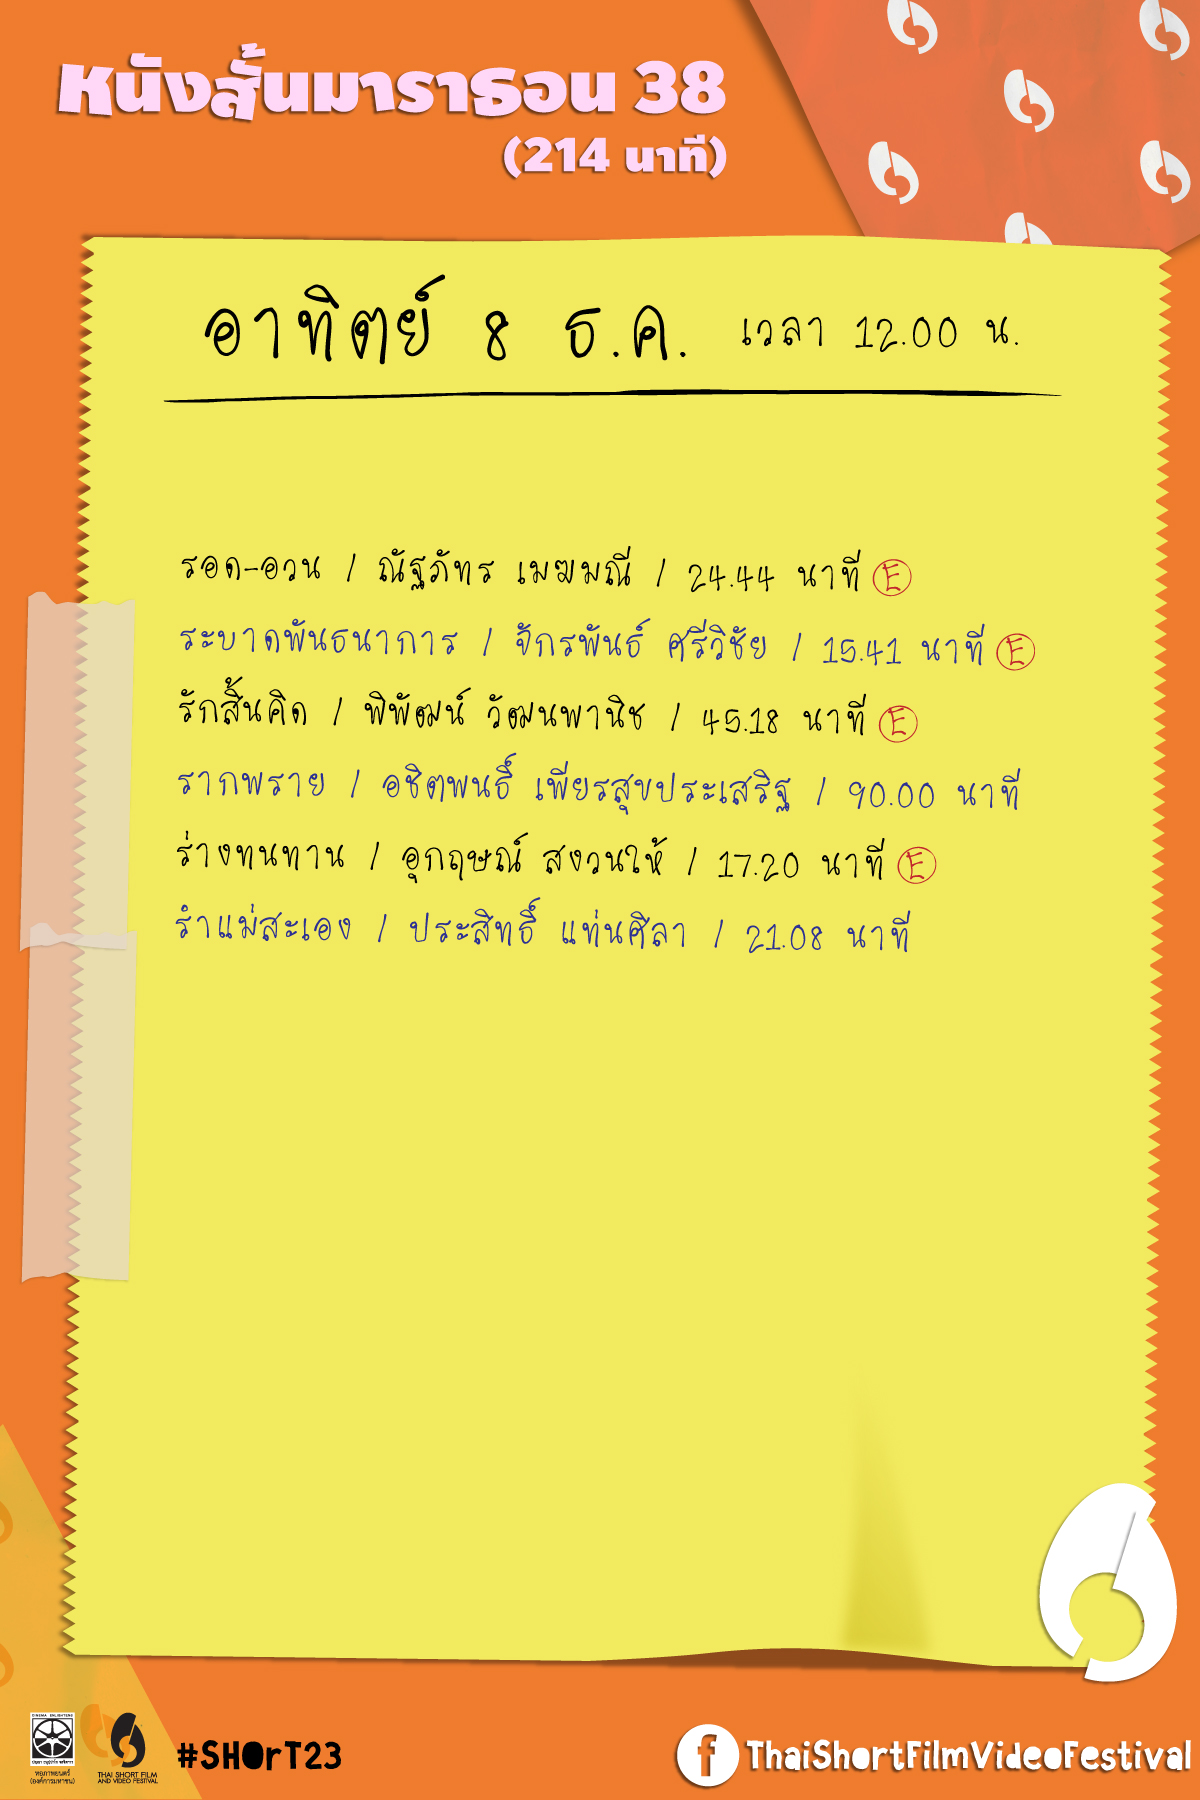 หนังสั้นมาราธอน 38
(214 นาที)
อาทิตย์ 8 ธ.ค. เวลา 12.00 น.
รอด-อวน / ณัฐภัทร เมฆมณี / 24.44 นาที E
ระบาดพันธนาการ / จักรพันธ์ ศรีวิชัย / 15.41 นาที E
รักสิ้นคิด / พิพัฒน์ วัฒนพานิช / 45.18 นาที E
รากพราย / อชิตพนธิ์ เพียรสุขประเสริฐ / 90.00 นาที
ร่างทนทาน / อุกฤษณ์ สงวนให้ / 17.20 นาที E
รำแม่สะเอง / ประสิทธิ์ แท่นศิลา / 21.08 นาที
CINEMA ENLIGHTENS
หอภาพยนตร์
(องค์การมหาชน)
THAI SHORT FILM
AND VIDEO FESTIVAL
#SHOrT23
f ThaiShortFilmVideoFestival